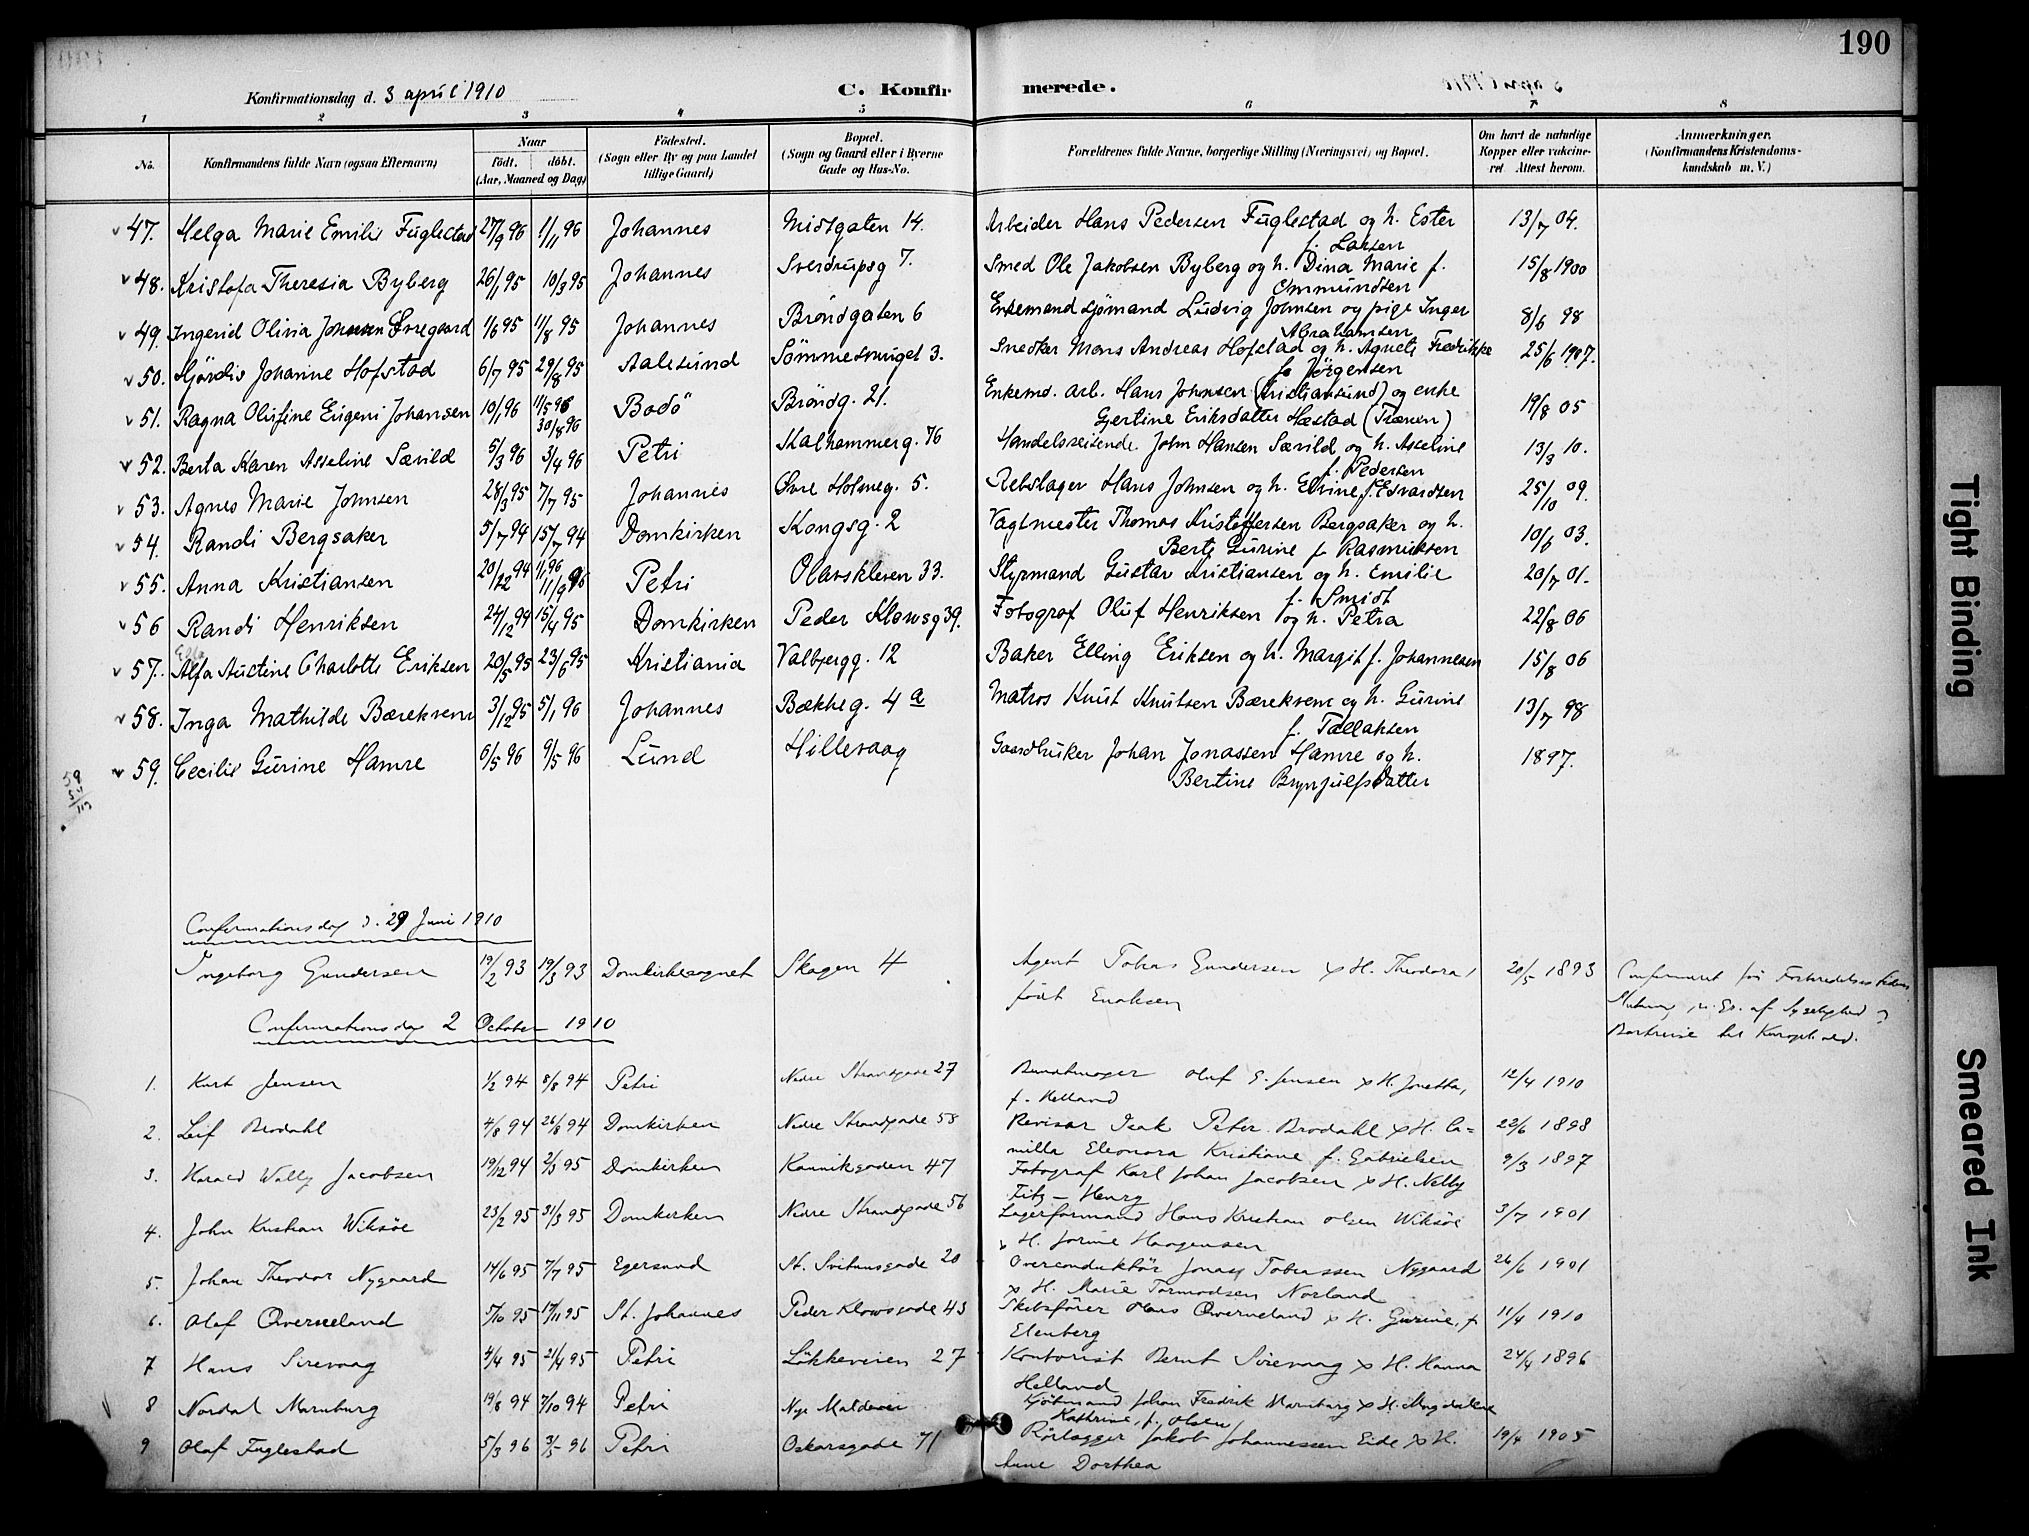 190
Konfirmationsdag d. 3 april 1910 C. Konfirmerede.
1 2 3 4 5 6 7 8
No. Konfirmandens fulde Navn (ogsaa Efternavn) Naar födt. döbt. (Aar, Maaned og Dag) Födested. (Sogn eller By og paa Landet tillige Gaard) Bopæl. (Sogn og Gaard eller i Byerne Gade og Hus-No. Forældrenes fulde Navne, borgerlige Stilling (Næringsvei) og Bopæl. Om havt de naturlige Kopper eller vakcineret Attest herom. Anmærkninger. (Konfirmandens Kristendomskundskab m. V.)
47. Helga Marie Emilie Fuglestad 27/9 96 1/11 96 Johannes Midtgaten 14. Arbeider Hans Pedersen Fuglestad og h. Ester 13/7 04.
f. Larsen
48. Kristofa Theresia Byberg 26/1 95 10/3 95 Johannes Sverdrupsg 7. Smed Ole Jakobsen Byberg og h. Dina Marie f. 15/8 1900
Ommundsen
49. Ingerid Olivia 1/6 95 11/8 95 Johannes Bröndgaten 6 Enkemand sjömand Ludvig Johnsen og pige Inger 8/6 98
Abrahamsen
50. Hjördis Johanne Hofstad 6/7 95 29/8 95 Aalesund Sömmesmuget 3. Snedker Mons Andreas Hofstad og h. Agnete Fredrikke 25/6 1907.
f. Jörgensen
51. Ragna Olufine Eugeni Johansen 10/1 96 11/5 96 Bodö Bröndg. 21. Enkemd. arb. Hans Johnsen (Kristiansund) og enke 19/8 05
30/8 96 Gjertine Eriksdatter Hæstad (Trænen)
52. Berta Karen Asseline Særild 5/3 96 3/4 96 Petri Kalhammerg. 76 Handelsreisende John Hansen Særild og h. Asseline 13/3 10.
f. Pedersen
53. Agnes Marie Johnsen 28/3 95 7/7 95 Johannes Övre Holmeg. 5. Rebslager Hans Johnsen og h. Edvardsen 25/10 09.
54. Randi Bergsaker 5/7 94 15/7 94 Domkirken Kongsg. 2 Vagtmester Thomas Kristoffersen Bergsaker og h. 10/6 03.
Berte Gurine f. Rasmussen
55. Anna Kristiansen Petri Olavskleven 33. Styrmand Gustav Kristiansen og h. Emilie 20/7 01.
f. Smidt
56 Randi Henriksen 24/12 94 15/4 95 Domkirken Peder Klowsg 39. Fotograf Oluf Henriksen og h. Petra 22/8 06
57. Alfa Austine Charlotte Eriksen 20/5 95 23/6 95 Kristiania Valbjergg. 12 Baker Elling Eriksen og h. Margit f. Johannesen 15/8 06
58. Inga Mathilde Bærekven 3/12 95 5/1 96 Johannes Bækkeg. 4 a Matros Knut Knutsen Bærekven og h. Gurine 13/7 98
f. Tallaksen
59. Cecilie Gurine Hamre 6/5 96 9/5 96 Lund Hillevaag Gaardbruker Johan Jonassen Hamre og h. 1897.
Bertine Brynjulfsdatter
Confirmationsdag d. 29 Juni 1910
Ingeborg Gundersen 19/2 93 19/3 93 Domkirkesognet Skagen 4 Agent Tobias Gundersen & H. Theodora 20/5 1893
födt Enoksen
Confirmationsdag 2 October 1910
1. Kurt Jensen 1/2 94 8/8 94 Petri Nedre Strandgade 27 Buntmager Oluf G. Jensen & H. Jonetta, 12/4 1910
f. Helland
2. Leif Brodahl 4/8 94 26/8 94 Domkirken Nedre Strandgade 58 Revisor Isak Peter Brodahl & H. Ca= 22/6 1898
milla Eleonora Kristiane f. Gabrielsen
3. Harald Wally Jacobsen 19/12 94 2/3 95 Domkirken Kannikgaden 47 Fotograf Karl Johan Jacobsen & H. Nelly 9/3 1897
Fitz-Henry
4. John Kristian Wiksöe 23/2 95 31/3 95 Domkirken Nedre Strandgade 56 Lagerformand Hans Kristian Olsen Wiksöe 3/7 1901
& H. Jorine Haagensen
5. Johan Theodor Nygaard 14/6 95 7/7 95 Egersund St. Svithunsgade 20 Overconduktör Jonas Tobiassen Nygaard 26/6 1901
& H. Marie Tormodsen Norland
6. Olaf Qverneland 5/10 95 17/11 95 St. Johannes Peder Klowsgade 43 Skibsförer Hans Qverneland & H. Gurine, f 11/4 1910
Elenberg
7 Hans Sirevaag 4/4 95 21/4 95 Petri Lökkeveien 27 Kontorist Bernt Sirevaag & H. Hanna 24/4 1896
Helland
8 Nordal Marnburg 19/6 94 7/10 94 Petri Nye Kjöbmand Johan Fredrik Marnburg & H. Magdalene
Kathrine, f. Olsen
9 Olaf Fuglestad 5/3 96 3/5 96 Petri Oskarsgade 71 Rörlægger Jakob Johannessen Eide & H. 19/4 1905
Anne Dorthea
Tight Binding
Smeared Ink